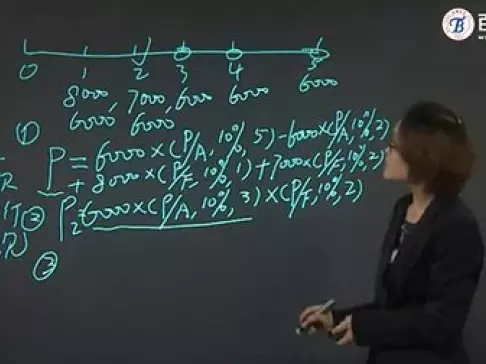 0 1 2 3 4 5
8000, 7000, 6000 6000 6000
6000 6000
① P = 6000×(P/A, 10%, 5) - 6000×(P/A, 10%, 2)
+ 8000×(P/F, 10%, 1) + 7000×(P/F, 10%, 2)
② P₂=6000×(P/A, 10%, 3)×(P/F, 10%, 2)
③